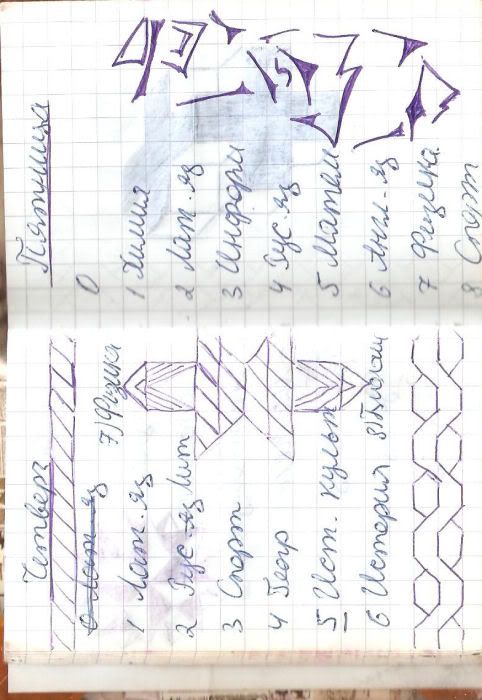 Четверг
0 Лат. яз
1 Лат. яз 7)Физика
2 Рус. яз Лит
3 Спорт
4 Геогр
5 Ист. культ
6 История 8)
Пятница
0
1 Химия
2 Лат. яз
3 Информ
4 Рус. яз 5
5 Матем
6 Англ. яз
7 Физика
8 Спорт